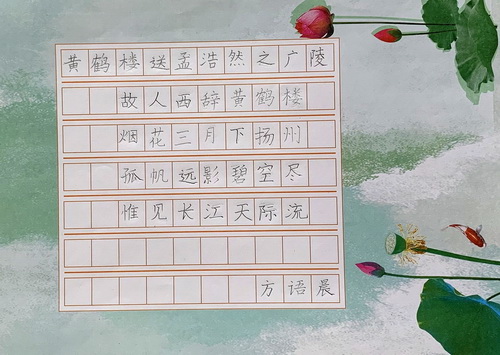 黄鹤楼送孟浩然之广陵
故人西辞黄鹤楼
烟花三月下扬州
孤帆远影碧空尽
惟见长江天际流
方语晨